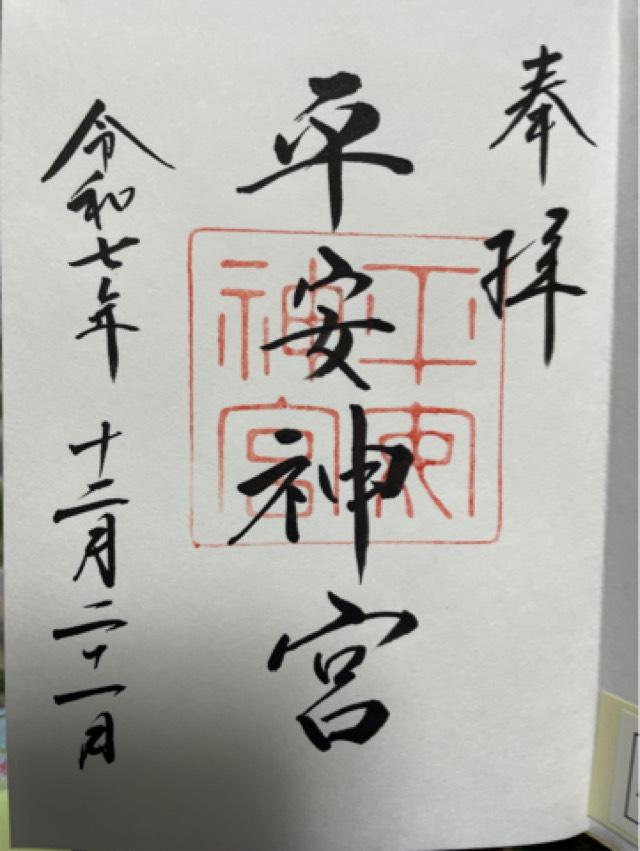 奉拝
平安神宮
神宮
令和七年 十二月二十一日